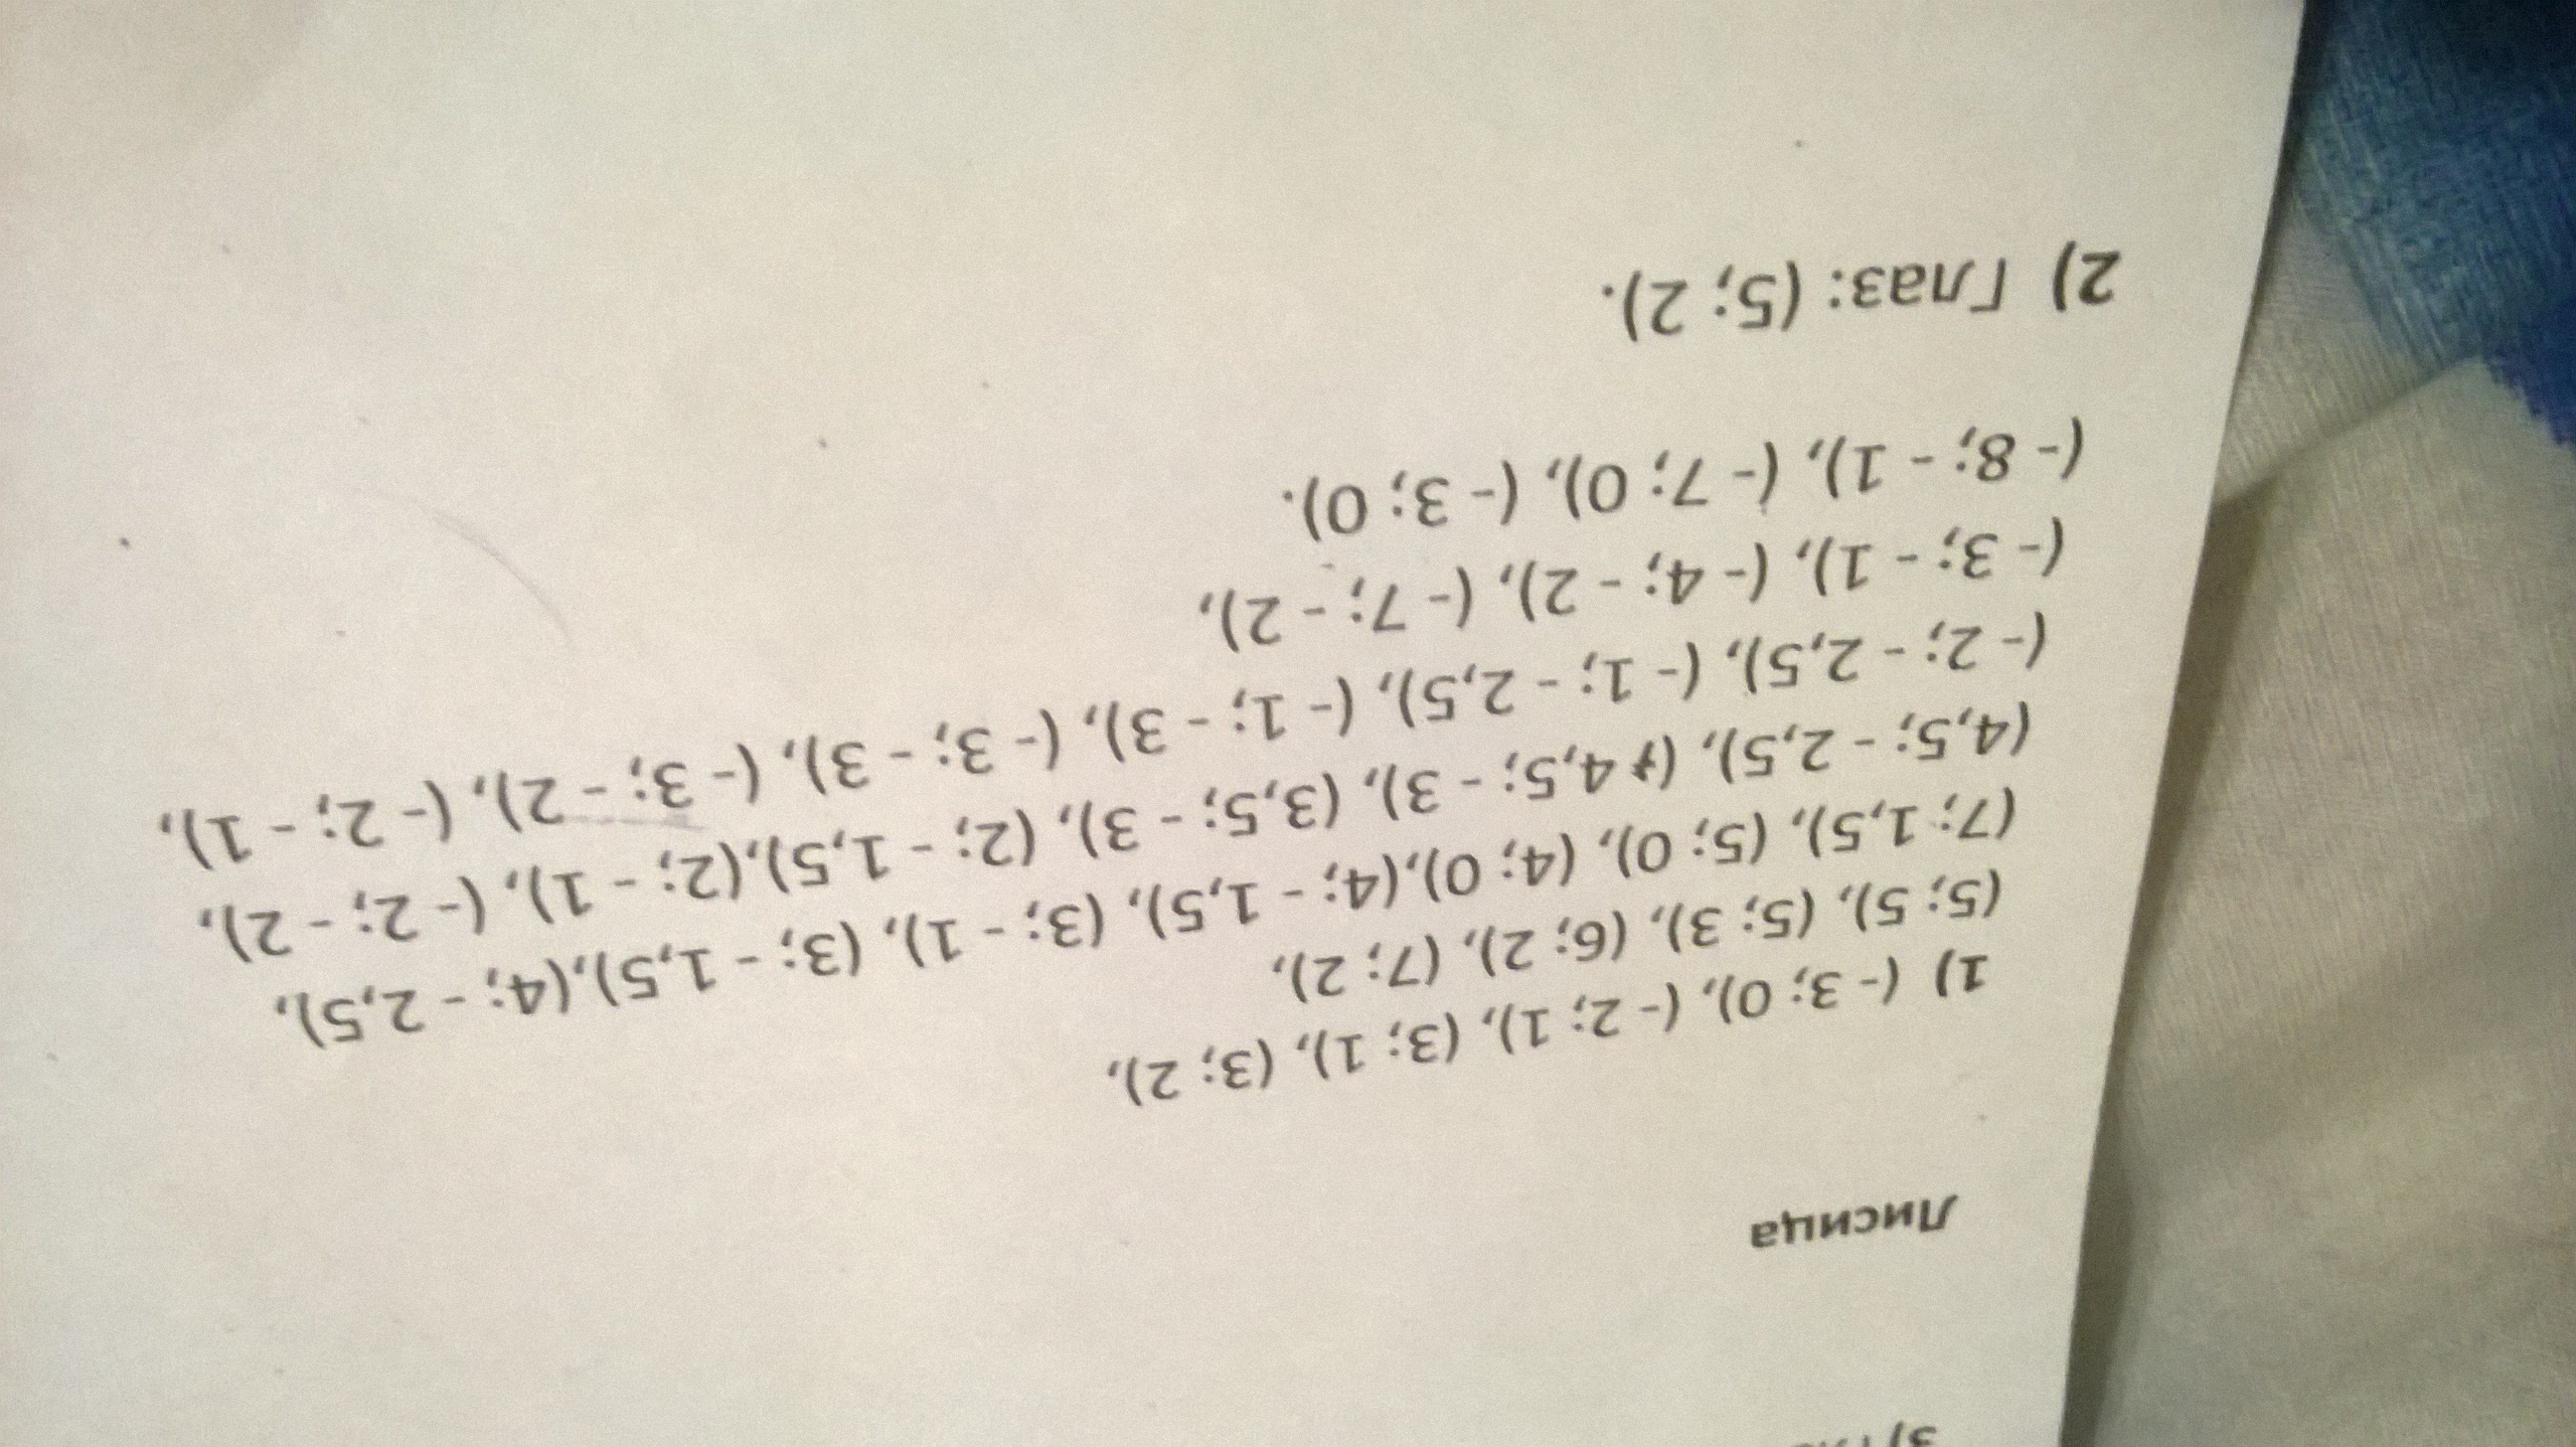 Лисица
1) (- 3; 0), (- 2; 1), (3; 1), (3; 2),
(5; 5), (5; 3), (6; 2), (7; 2),
(7; 1,5), (5; 0), (4; 0),(4; - 1,5), (3; - 1), (3; - 1,5),(4; - 2,5),
(4,5; - 2,5), (+ 4,5; - 3), (3,5; - 3), (2; - 1,5),(2; - 1), (- 2; - 2),
(- 2; - 2,5), (- 1; - 2,5), (- 1; - 3), (- 3; - 3), (- 3; - 2), (- 2; - 1),
(- 3; - 1), (- 4; - 2), (- 7; - 2),
(- 8; - 1), (- 7; 0), (- 3; 0).
2) Глаз: (5; 2).